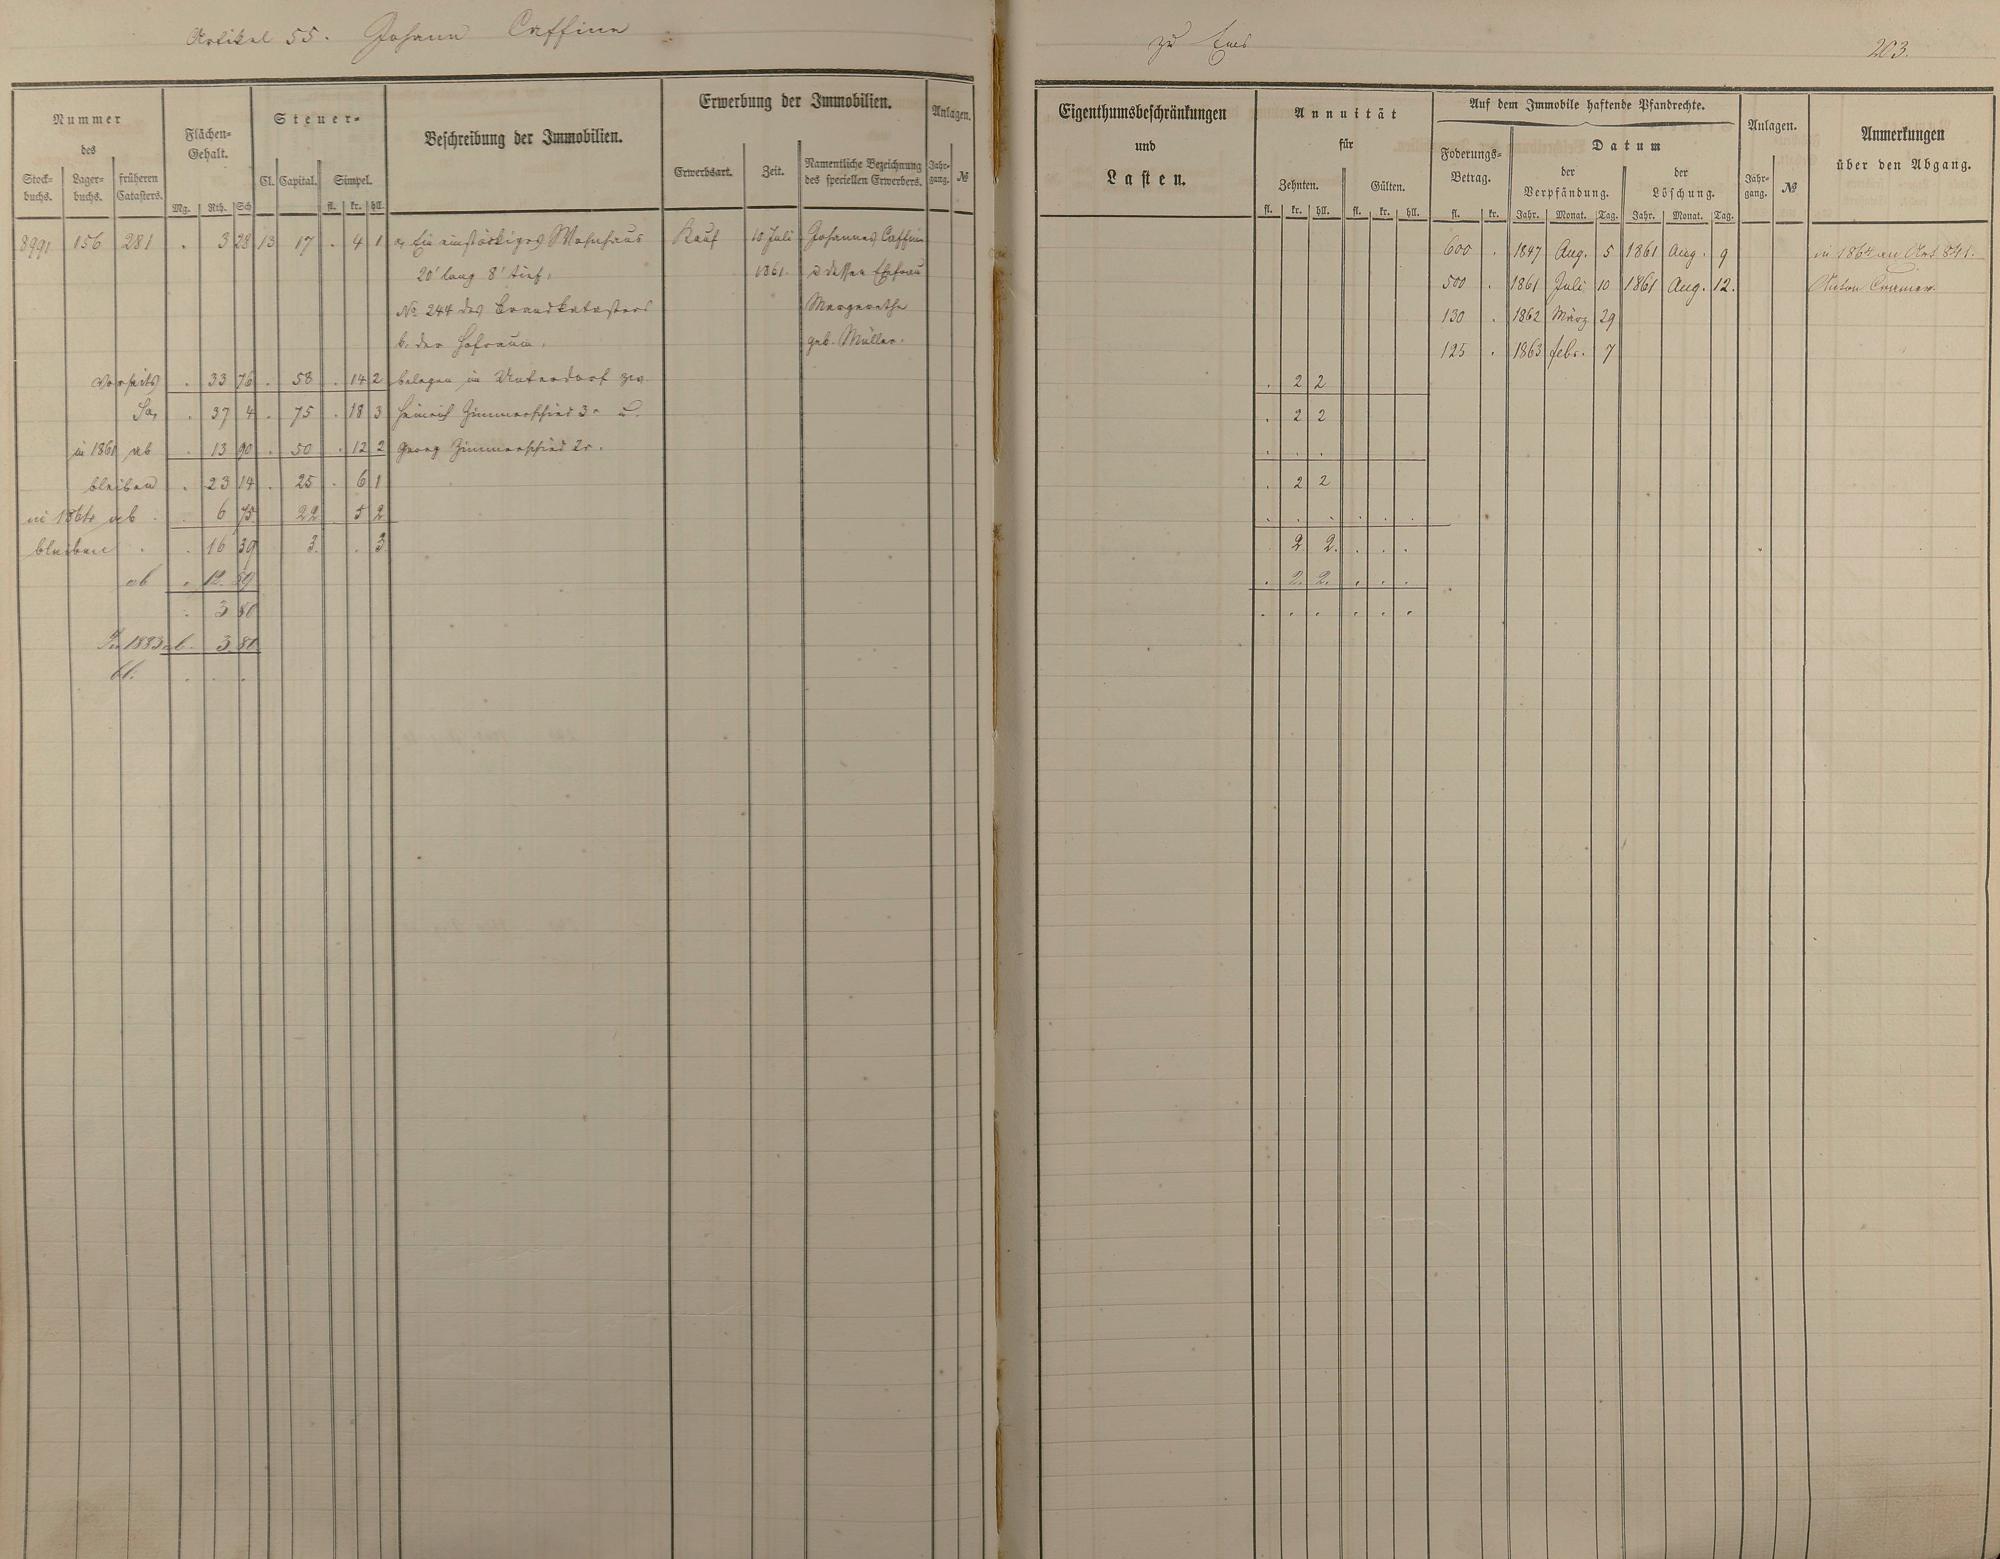 Artikel 55. Johann Caffine
zu Ems
203.
Nummer
des
Stock-
buchs.
Lager-
buchs.
früheren
Catasters.
Flächen-
Gehalt.
Mg. Rth. Sch
Steuer-
Cl. Capital. Simpel.
fl. kr. hll.
Beschreibung der Immobilien.
Erwerbung der Immobilien.
Erwerbsart. Zeit.
Namentliche Bezeichnung
des speciellen Erwerbers.
Anlagen.
Jahr-
gang. №
8991 156 281 . 3 28 13 17 . 4 1 a, Ein einstöckiges Wohnhaus Kauf 10 Juli Johannes Caffine
20' lang 8' tief, 1861. u dessen Ehefrau
№ 244 des Brandkatasters Margarethe
b. der Hofraum, geb. Müller.
Vorseits . 33 76 . 58 . 14 2 belegen im Unterdorf zw.
Sa, . 37 4 . 75 . 18 3 Heinrich Zimmerschied 3r u.
in 1861 ab . 13 90 . 50 . 12 2 Georg Zimmerschied 2r.
bleiben . 23 14 . 25 . 6 1
in 1864 ab . . 6 75 22 5 2
bleiben . . 16 39 3. . 3
ab . 12. 59
. 3 80
In 1883 ab. 3. 80
bl. . . .
Eigenthumsbeschränkungen
und
Lasten.
Annuität
für
Zehnten. Gülten.
fl. kr. hll. fl. kr. hll.
Auf dem Immobile haftende Pfandrechte.
Foderungs-
Betrag.
fl. kr.
Datum
der
Verpfändung.
Jahr. Monat. Tag.
der
Löschung.
Jahr. Monat. Tag.
Anlagen.
Jahr-
gang. №
Anmerkungen
über den Abgang.
600 . 1847 Aug. 5 1861 Aug. 9 in 1864 an Art 841.
500 . 1861 Juli 10 1861 Aug. 12. Anton
130 . 1862 März 29
125 . 1863 febr. 7
. 2 2
. 2 2
. . .
. 2 2
. . . . . .
2 2. . . .
. 2. 2. . . .
. . . . . .